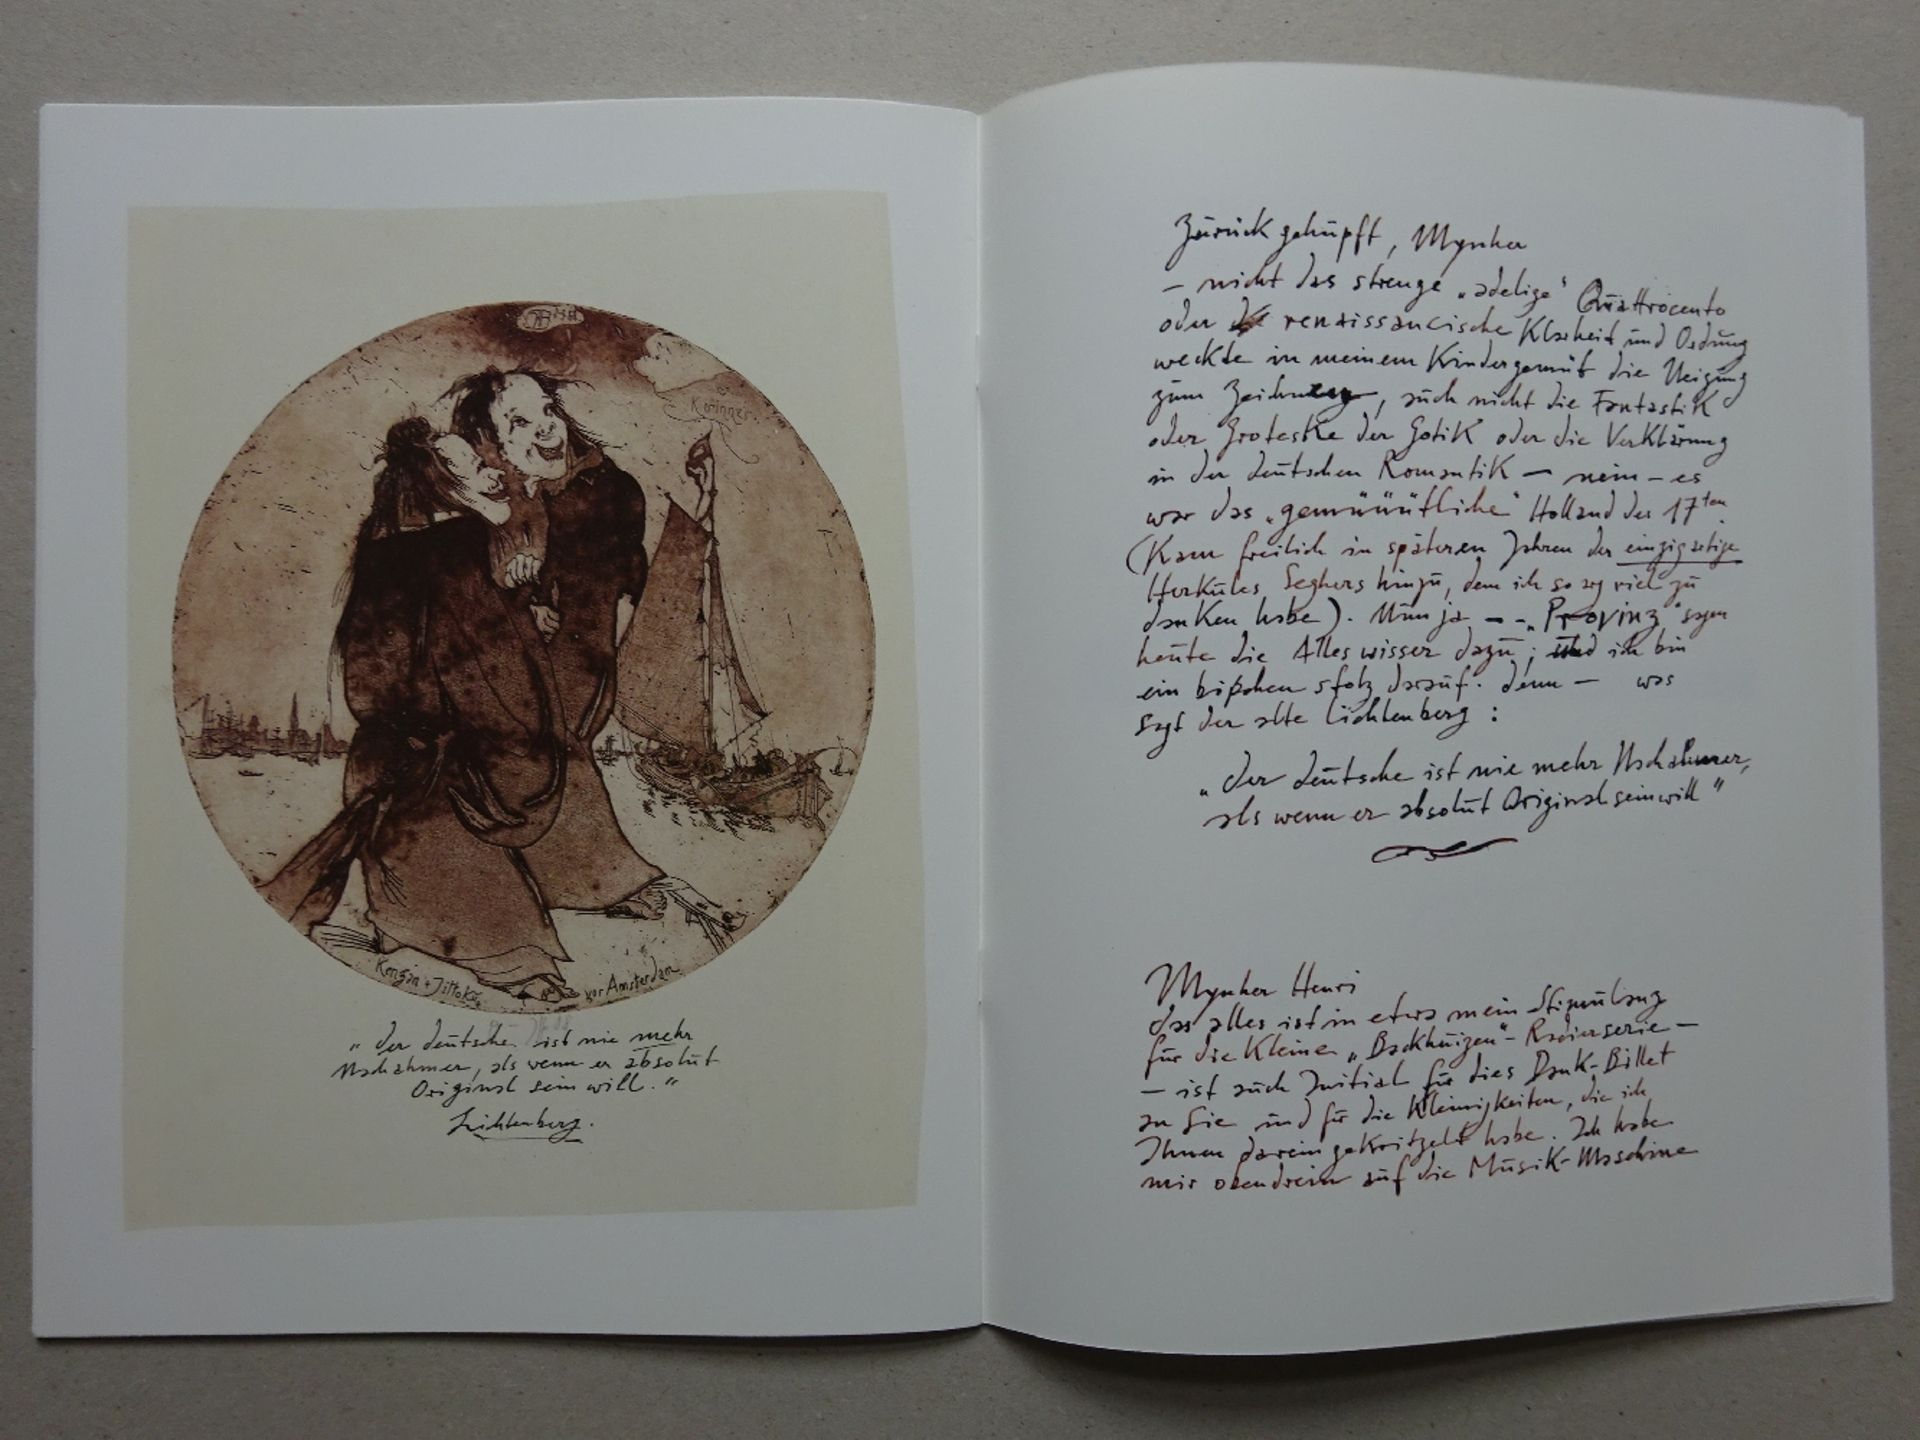 Korinner
Kanzan + Jittoku
vor Amsterdam
„der deutsche ist nie mehr
Nachahmer, als wenn er absolut
Original sein will.“
Lichtenberg.
Zurück gehüpft, Mynher
– nicht das strenge „adelige“ Quattrocento
oder renaissancische Klarheit und Ordnung
weckte in meinem Kindergemüt die Neigung
zum Zeichnen, auch nicht die Fantastik
oder Groteske der Gotik oder die Verklärung
in der deutschen Romantik – nein – es
war das „gemüüütliche“ Holland der 17ten.
(Kam freilich in späteren Jahren der einzigartige
Herkules Seghers hinzu, dem ich so arg viel zu
danken habe). Nun ja – – „Provinz“ sagen
heute die Alleswisser dazu; und ich bin
ein bißchen stolz darauf. denn – was
sagt der alte Lichtenberg:
„der deutsche ist nie mehr Nachahmer,
als wenn er absolut Original sein will“
Mynher Henri
das alles ist in etwa mein Stimulanz
für die kleine „Backhuizen“-Radierserie –
– ist auch Initial für dies Dank-Billet
an Sie und für die Kleinigkeiten, die ich
Ihnen darein gekritzelt habe. Ich habe
mir obendrein auf die Musik-Maschine